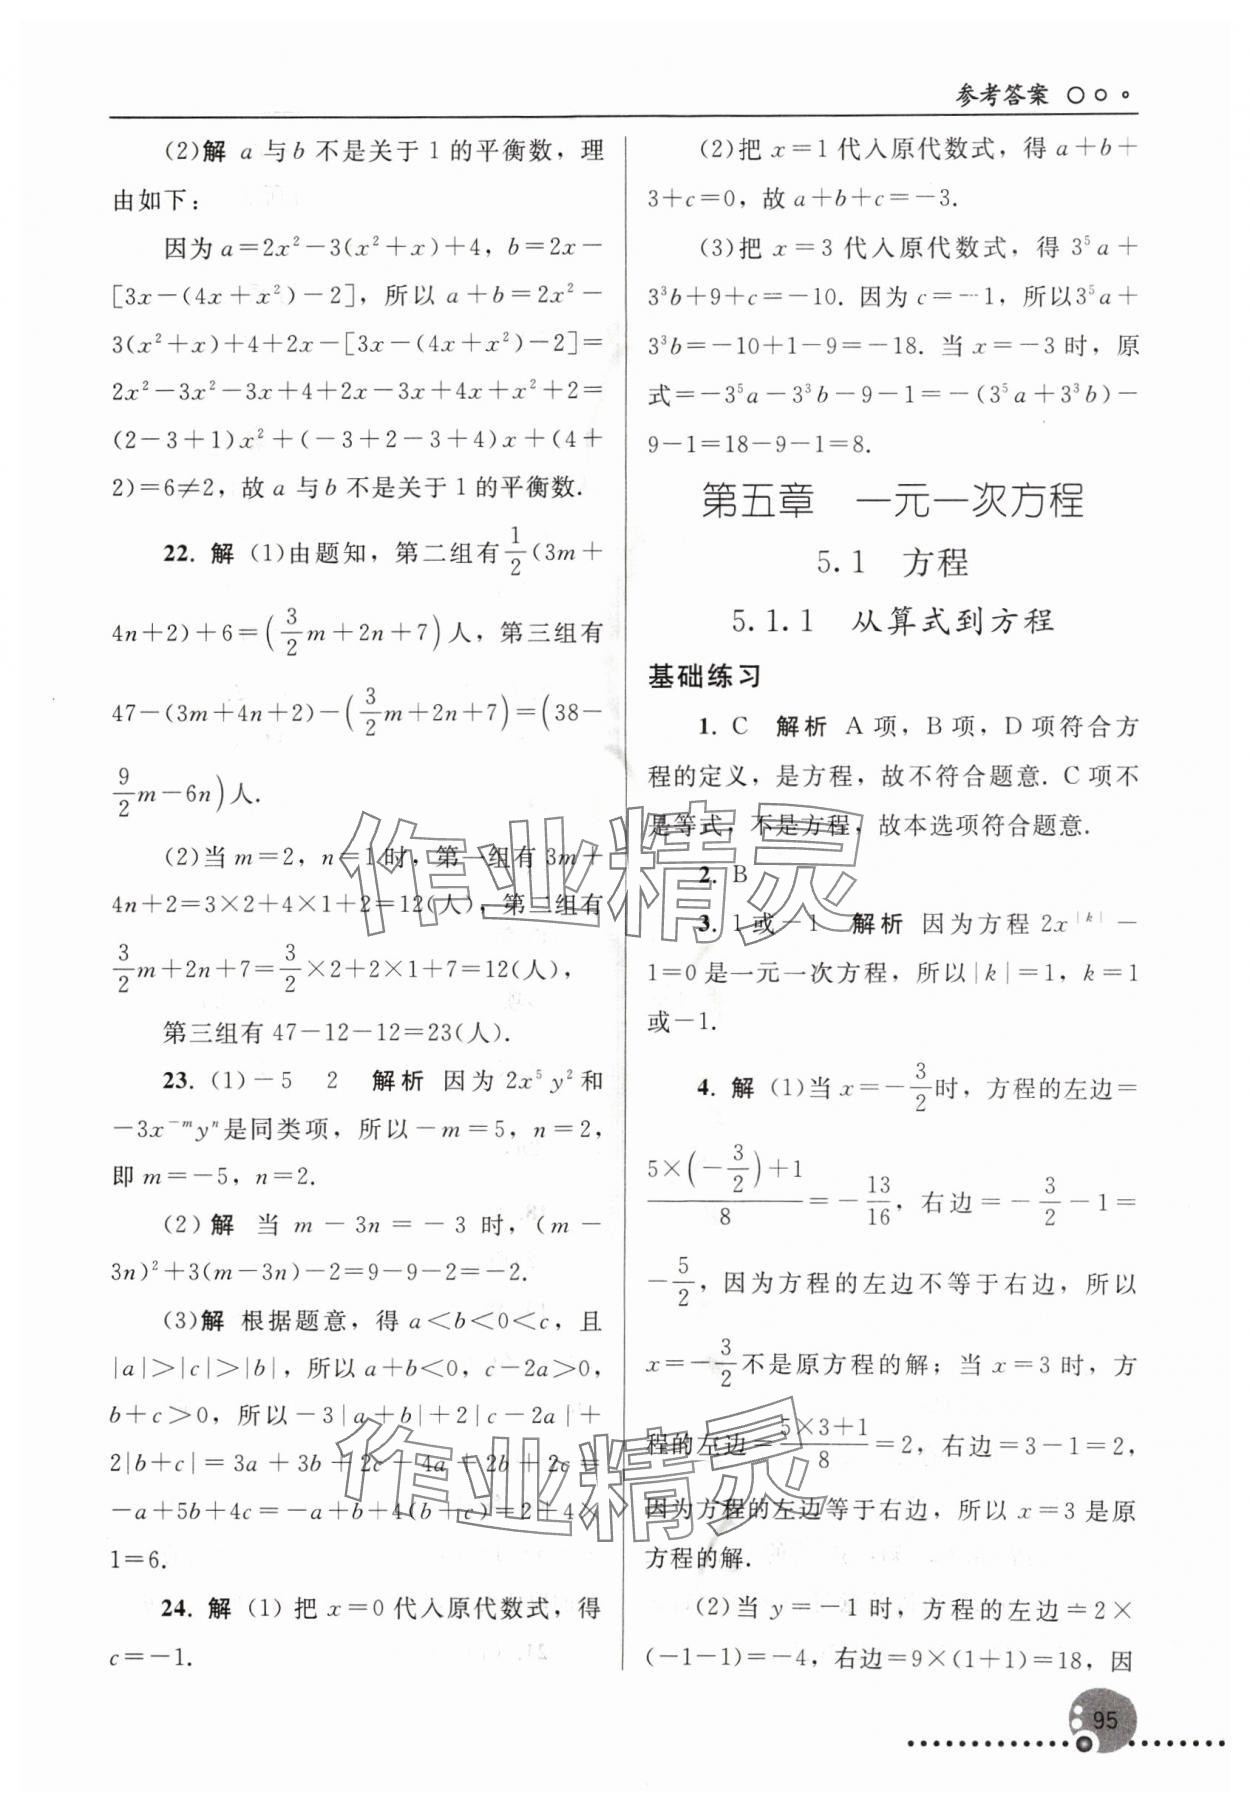 参考答案
(2)解 a 与 b 不是关于 1 的平衡数，理
由如下：
因为 a＝2x²－3(x²＋x)＋4，b＝2x－
[3x－(4x＋x²)－2]，所以 a＋b＝2x²－
3(x²＋x)＋4＋2x－[3x－(4x＋x²)－2]＝
2x²－3x²－3x＋4＋2x－3x＋4x＋x²＋2＝
(2－3＋1)x²＋(－3＋2－3＋4)x＋(4＋
2)＝6≠2，故 a 与 b 不是关于 1 的平衡数.
22. 解 (1)由题知，第二组有 1/2 (3m＋
4n＋2)＋6＝(3/2 m＋2n＋7)人，第三组有
47－(3m＋4n＋2)－(3/2 m＋2n＋7)＝(38－
9/2 m－6n)人.
(2)当 m＝2，n＝1时，第一组有 3m＋
4n＋2＝3×2＋4×1＋2＝12(人)，第二组有
3/2 m＋2n＋7＝3/2×2＋2×1＋7＝12(人)，
第三组有 47－12－12＝23(人).
23. (1)－5 2 解析 因为 2x⁵y² 和
－3x⁻ᵐyⁿ是同类项，所以－m＝5，n＝2，
即 m＝－5，n＝2.
(2)解 当 m－3n＝－3 时，(m－
3n)²＋3(m－3n)－2＝9－9－2＝－2.
(3)解 根据题意，得 a＜b＜0＜c，且
|a|＞|c|＞|b|，所以 a＋b＜0，c－2a＞0，
b＋c＞0，所以－3|a＋b|＋2|c－2a|＋
2|b＋c|＝3a＋3b＋2c－4a＋2b＋2c＝
－a＋5b＋4c＝－a＋b＋4(b＋c)＝2＋4×
1＝6.
24. 解 (1) 把 x＝0 代入原代数式，得
c＝－1.
(2)把 x＝1 代入原代数式，得 a＋b＋
3＋c＝0，故 a＋b＋c＝－3.
(3)把 x＝3 代入原代数式，得 3⁵a＋
3³b＋9＋c＝－10. 因为 c＝－1，所以3⁵a＋
3³b＝－10＋1－9＝－18. 当 x＝－3 时，原
式＝－3⁵a－3³b－9－1＝－(3⁵a＋3³b)－
9－1＝18－9－1＝8.
第五章 一元一次方程
5.1 方程
5.1.1 从算式到方程
基础练习
1. C 解析 A 项，B 项，D 项符合方
程的定义，是方程，故不符合题意. C 项不
是等式，不是方程，故本选项符合题意.
2. B
3. 1或－1 解析 因为方程 2x^|k|－
1＝0 是一元一次方程，所以|k|＝1，k＝1
或－1.
4. 解 (1)当 x＝－3/2时，方程的左边＝
(5×(－3/2)＋1)/8＝－13/16，右边＝－3/2－1＝
－5/2，因为方程的左边不等于右边，所以
x＝－3/2不是原方程的解；当 x＝3 时，方
程的左边＝(5×3＋1)/8＝2，右边＝3－1＝2，
因为方程的左边等于右边，所以 x＝3 是原
方程的解.
(2)当 y＝－1 时，方程的左边＝2×
(－1－1)＝－4，右边＝9×(1＋1)＝18，因
95
作业精灵
作业精灵